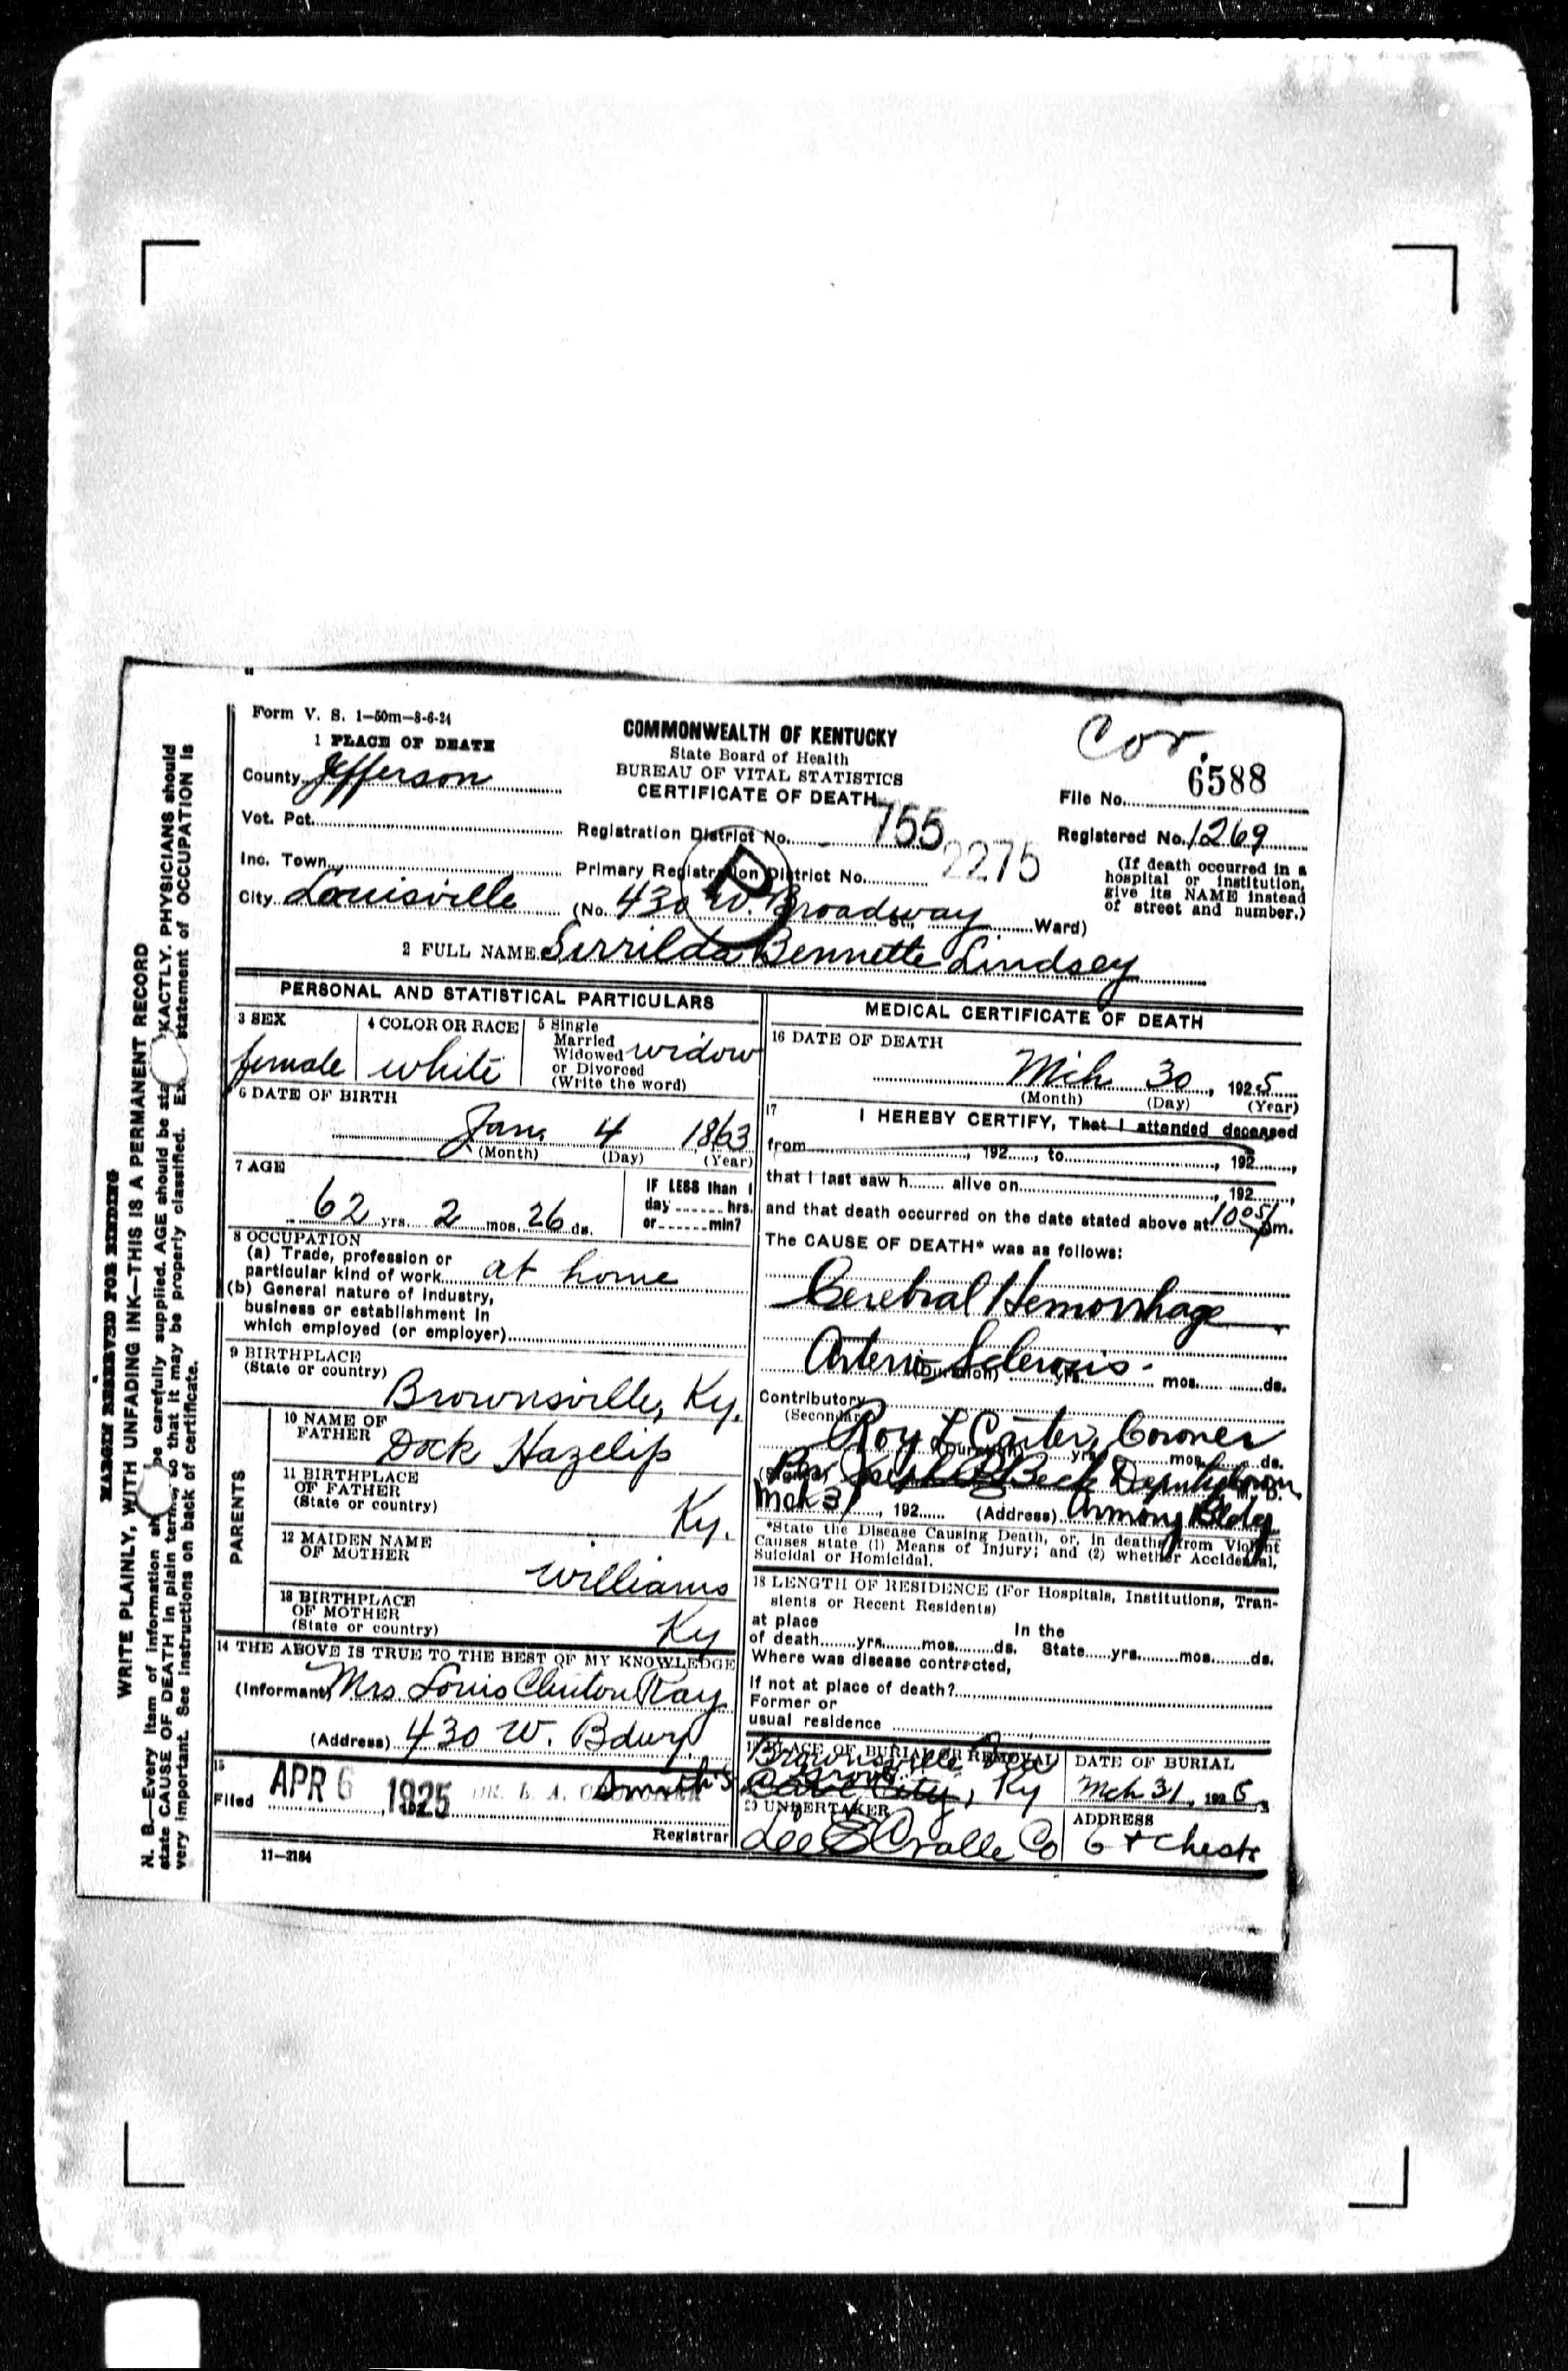 MARGIN RESERVED FOR BINDING
WRITE PLAINLY, WITH UNFADING INK—THIS IS A PERMANENT RECORD
N. B.—Every item of information sh be carefully supplied. AGE should be sta EXACTLY. PHYSICIANS should
state CAUSE OF DEATH in plain terms, so that it may be properly classified. Ex statement of OCCUPATION is
very important. See instructions on back of certificate.
Form V. S. 1—50m—8-6-24
COMMONWEALTH OF KENTUCKY
State Board of Health
BUREAU OF VITAL STATISTICS
CERTIFICATE OF DEATH
Cor.
File No. 6588
Registered No. 1269
(If death occurred in a
hospital or institution,
give its NAME instead
of street and number.)
1 PLACE OF DEATH
County Jefferson
Vot. Pct.
Registration District No. 755
Inc. Town
Primary Registration District No. 2275
City Louisville (No. 430 W. Broadway St., Ward)
2 FULL NAME Serrilda Bennette Lindsey
PERSONAL AND STATISTICAL PARTICULARS
3 SEX
female
4 COLOR OR RACE
white
5 Single
Married
Widowed widow
or Divorced
(Write the word)
6 DATE OF BIRTH
Jan. 4 1863
(Month) (Day) (Year)
7 AGE
62 yrs. 2 mos. 26 ds.
IF LESS than 1
day hrs.
or min?
8 OCCUPATION
(a) Trade, profession or
particular kind of work at home
(b) General nature of industry,
business or establishment in
which employed (or employer)
9 BIRTHPLACE
(State or country)
Brownsville, Ky.
PARENTS
10 NAME OF
FATHER
Dock Hazelip
11 BIRTHPLACE
OF FATHER
(State or country)
Ky.
12 MAIDEN NAME
OF MOTHER
Williams
13 BIRTHPLACE
OF MOTHER
(State or country)
Ky
14 THE ABOVE IS TRUE TO THE BEST OF MY KNOWLEDGE
(Informant) Mrs. Louis Clinton Ray
(Address) 430 W. Bdwy.
15
Filed APR 6 1925
Registrar
11—2184
MEDICAL CERTIFICATE OF DEATH
16 DATE OF DEATH
Mch 30, 1925
(Month) (Day) (Year)
17
I HEREBY CERTIFY, That I attended deceased
from , 192 , to , 192 ,
that I last saw h alive on , 192 ,
and that death occurred on the date stated above at 10 05 pm.
The CAUSE OF DEATH* was as follows:
Cerebral Hemorrhage
Arterio Sclerosis.
(Duration) yrs. mos. ds.
Contributory
(Secondary)
Roy L Carter, Coroner
(Duration) yrs. mos. ds.
(Signed) Per Joseph Beck Deputy Coroner M. D.
Mch 31, 192 (Address) Armory Bldg
*State the Disease Causing Death, or, in deaths from Violent
Causes state (1) Means of Injury; and (2) whether Accidental,
Suicidal or Homicidal.
18 LENGTH OF RESIDENCE (For Hospitals, Institutions, Tran-
sients or Recent Residents)
at place In the
of death yrs. mos. ds. State yrs. mos. ds.
Where was disease contracted,
If not at place of death?
Former or
usual residence
19 PLACE OF BURIAL OR REMOVAL
Brownsville
Smith's Grove
Cave City, Ky
DATE OF BURIAL
Mch 31, 1925,
20 UNDERTAKER
Lee E Cralle Co
ADDRESS
6 + Chest